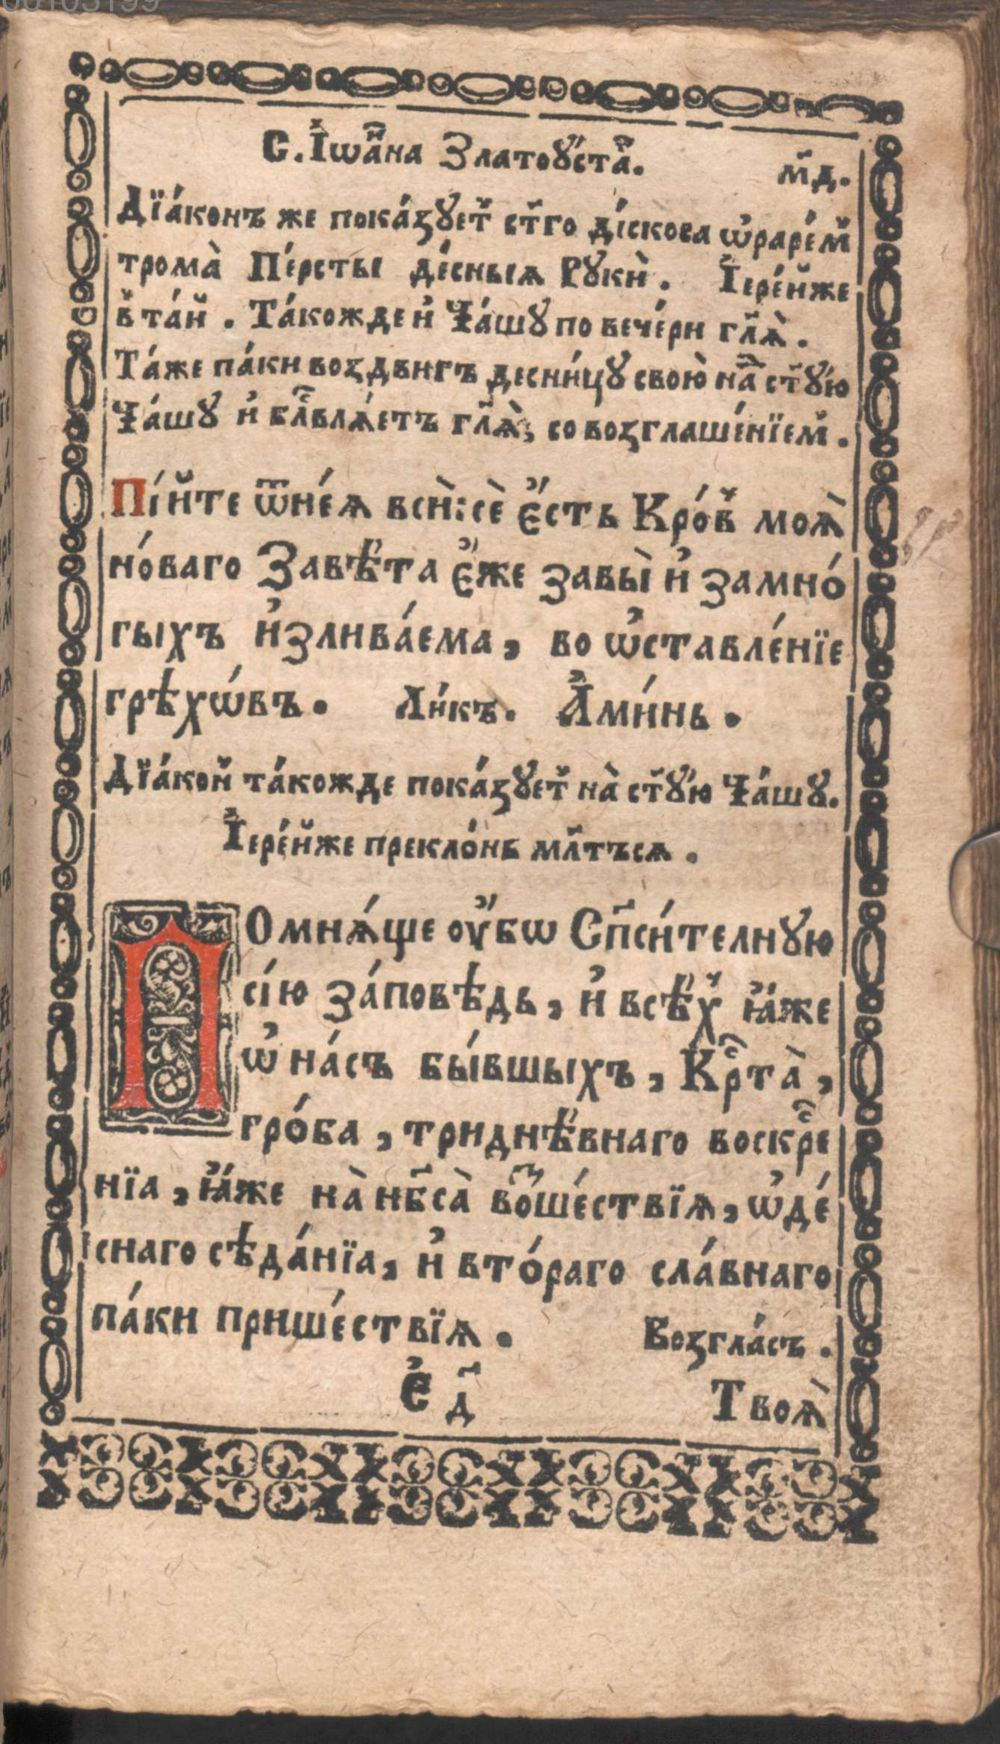 С. І҆ѡа҆́нна Златоу́ста.
м҃д.
Дїа́конъ же пока́зꙋет ст҃го ді́скоса ѡ҆раре́м
трома̀ Пе́рсты де́сныѧ Рꙋкѝ. І҆ере́й же
в та́й. Та́кожде и҆ Ча́шꙋ по вече́ри гл҃ѧ̀.
Та́же па́ки воздвигъ десни́цꙋ свою̀ на ст҃ꙋ́ю
Ча́шꙋ и҆ бл҃гвлѧ́етъ гл҃ѧ̀, со возглаше́нїем.
Пі́йте ѿ неѧ́ всѝ: сѐ є҆́сть Кро́в моѧ̀
но́ваго Завѣ́та є҆́же за вы̀ и҆ за мно́
гыхъ и҆злива́ема, во ѡ҆ставле́нїе
грѣхѡ́въ. Ли́къ. А҆ми́нь.
Дїа́кон та́кожде пока́зꙋет на̀ ст҃ꙋ́ю Ча́шꙋ.
І҆ере́й же прекло́нь мл҃тъсѧ.
ПОмнѧ́ще оу҆́бѡ Сп҃си́телнꙋю
сі́ю за́повѣдь, и҆ всѣ́х ꙗ҆́же
ѡ҆ на́съ бы́вшыхъ, Крⷭ҇та̀,
гро́ба, триднѣ́внаго воскрⷭ҇е
нїа, ꙗ҆́же на̀ нб҃са̀ воше́ствїѧ, ѡ҆де́
снаго сѣда́нїа, и҆ вто́раго сла́внаго
па́ки прише́ствїѧ. Возгла́съ.
Є҆ д҃ Твоѧ̀